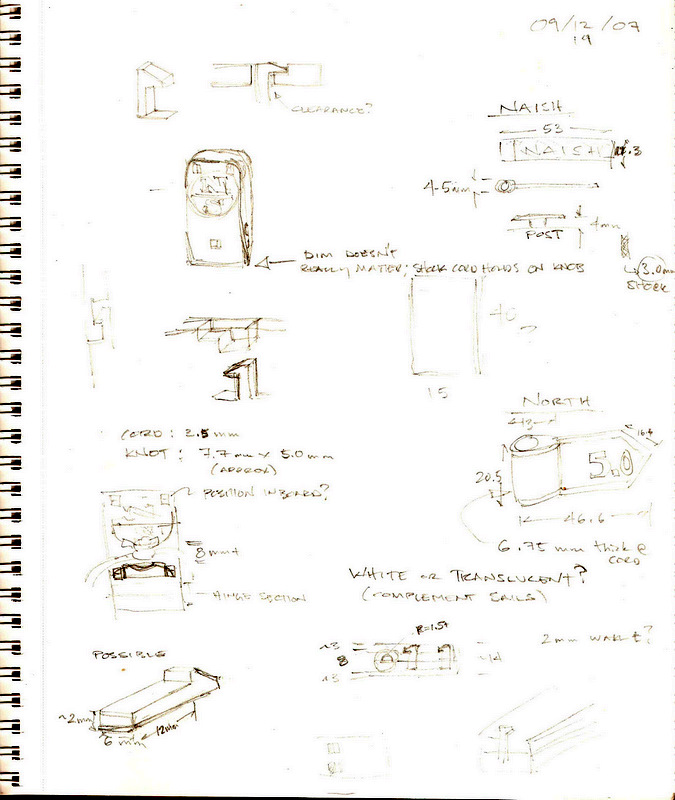 09/12/07
19
CLEARANCE?
NAISH
53
NAISH
.3
4-5mm
4mm
POST
DIM DOESN'T
REALLY MATTER; SHOCK CORD HOLDS ON KNOB
3.0mm
SHOCK
40
?
15
NORTH
43
16.4
5.0
20.5
46.6
6.75 mm thick @
CORD
CORD: 2.5mm
KNOT: 7.7mm x 5.0mm
(APPROX)
POSITION INBOARD?
8mm+
HINGE SECTION
WHITE OR TRANSLUCENT?
(COMPLEMENT SAILS)
R=1.5+
~3
8
~3
~14
2mm WALL?
POSSIBLE
~2mm
6mm
12mm